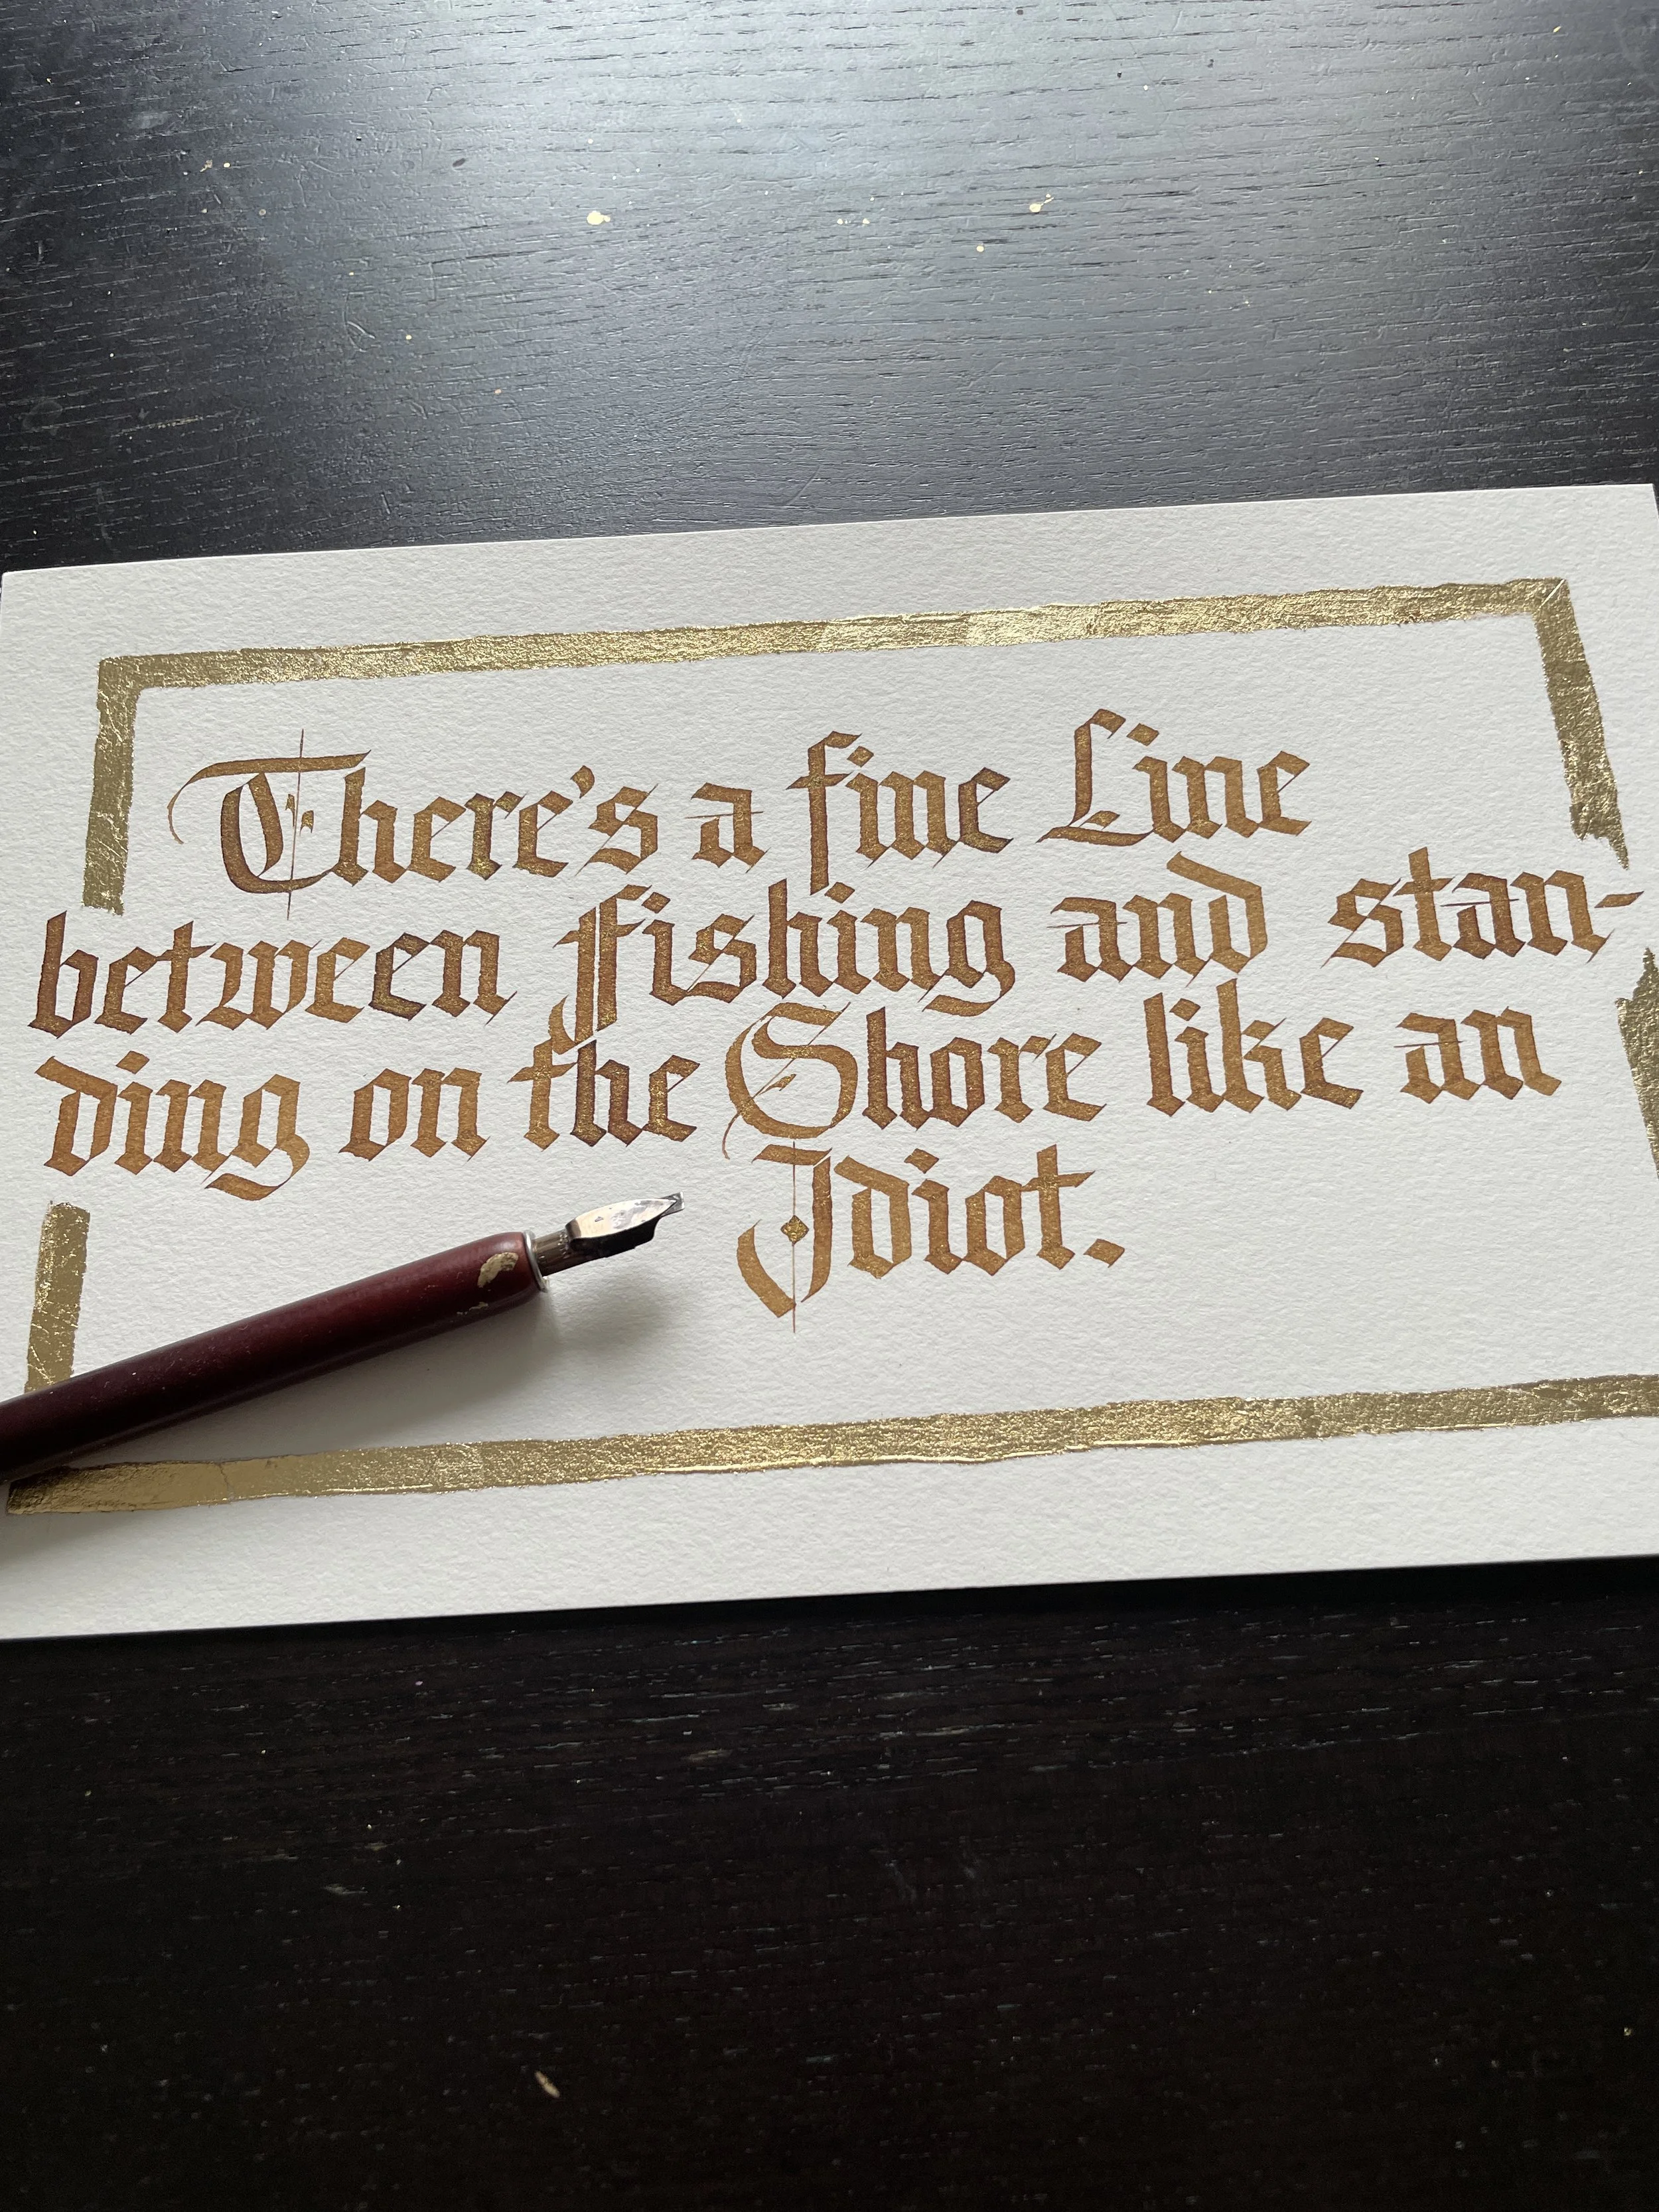 There's a fine Line
between Fishing and stan-
ding on the Shore like an
Idiot.